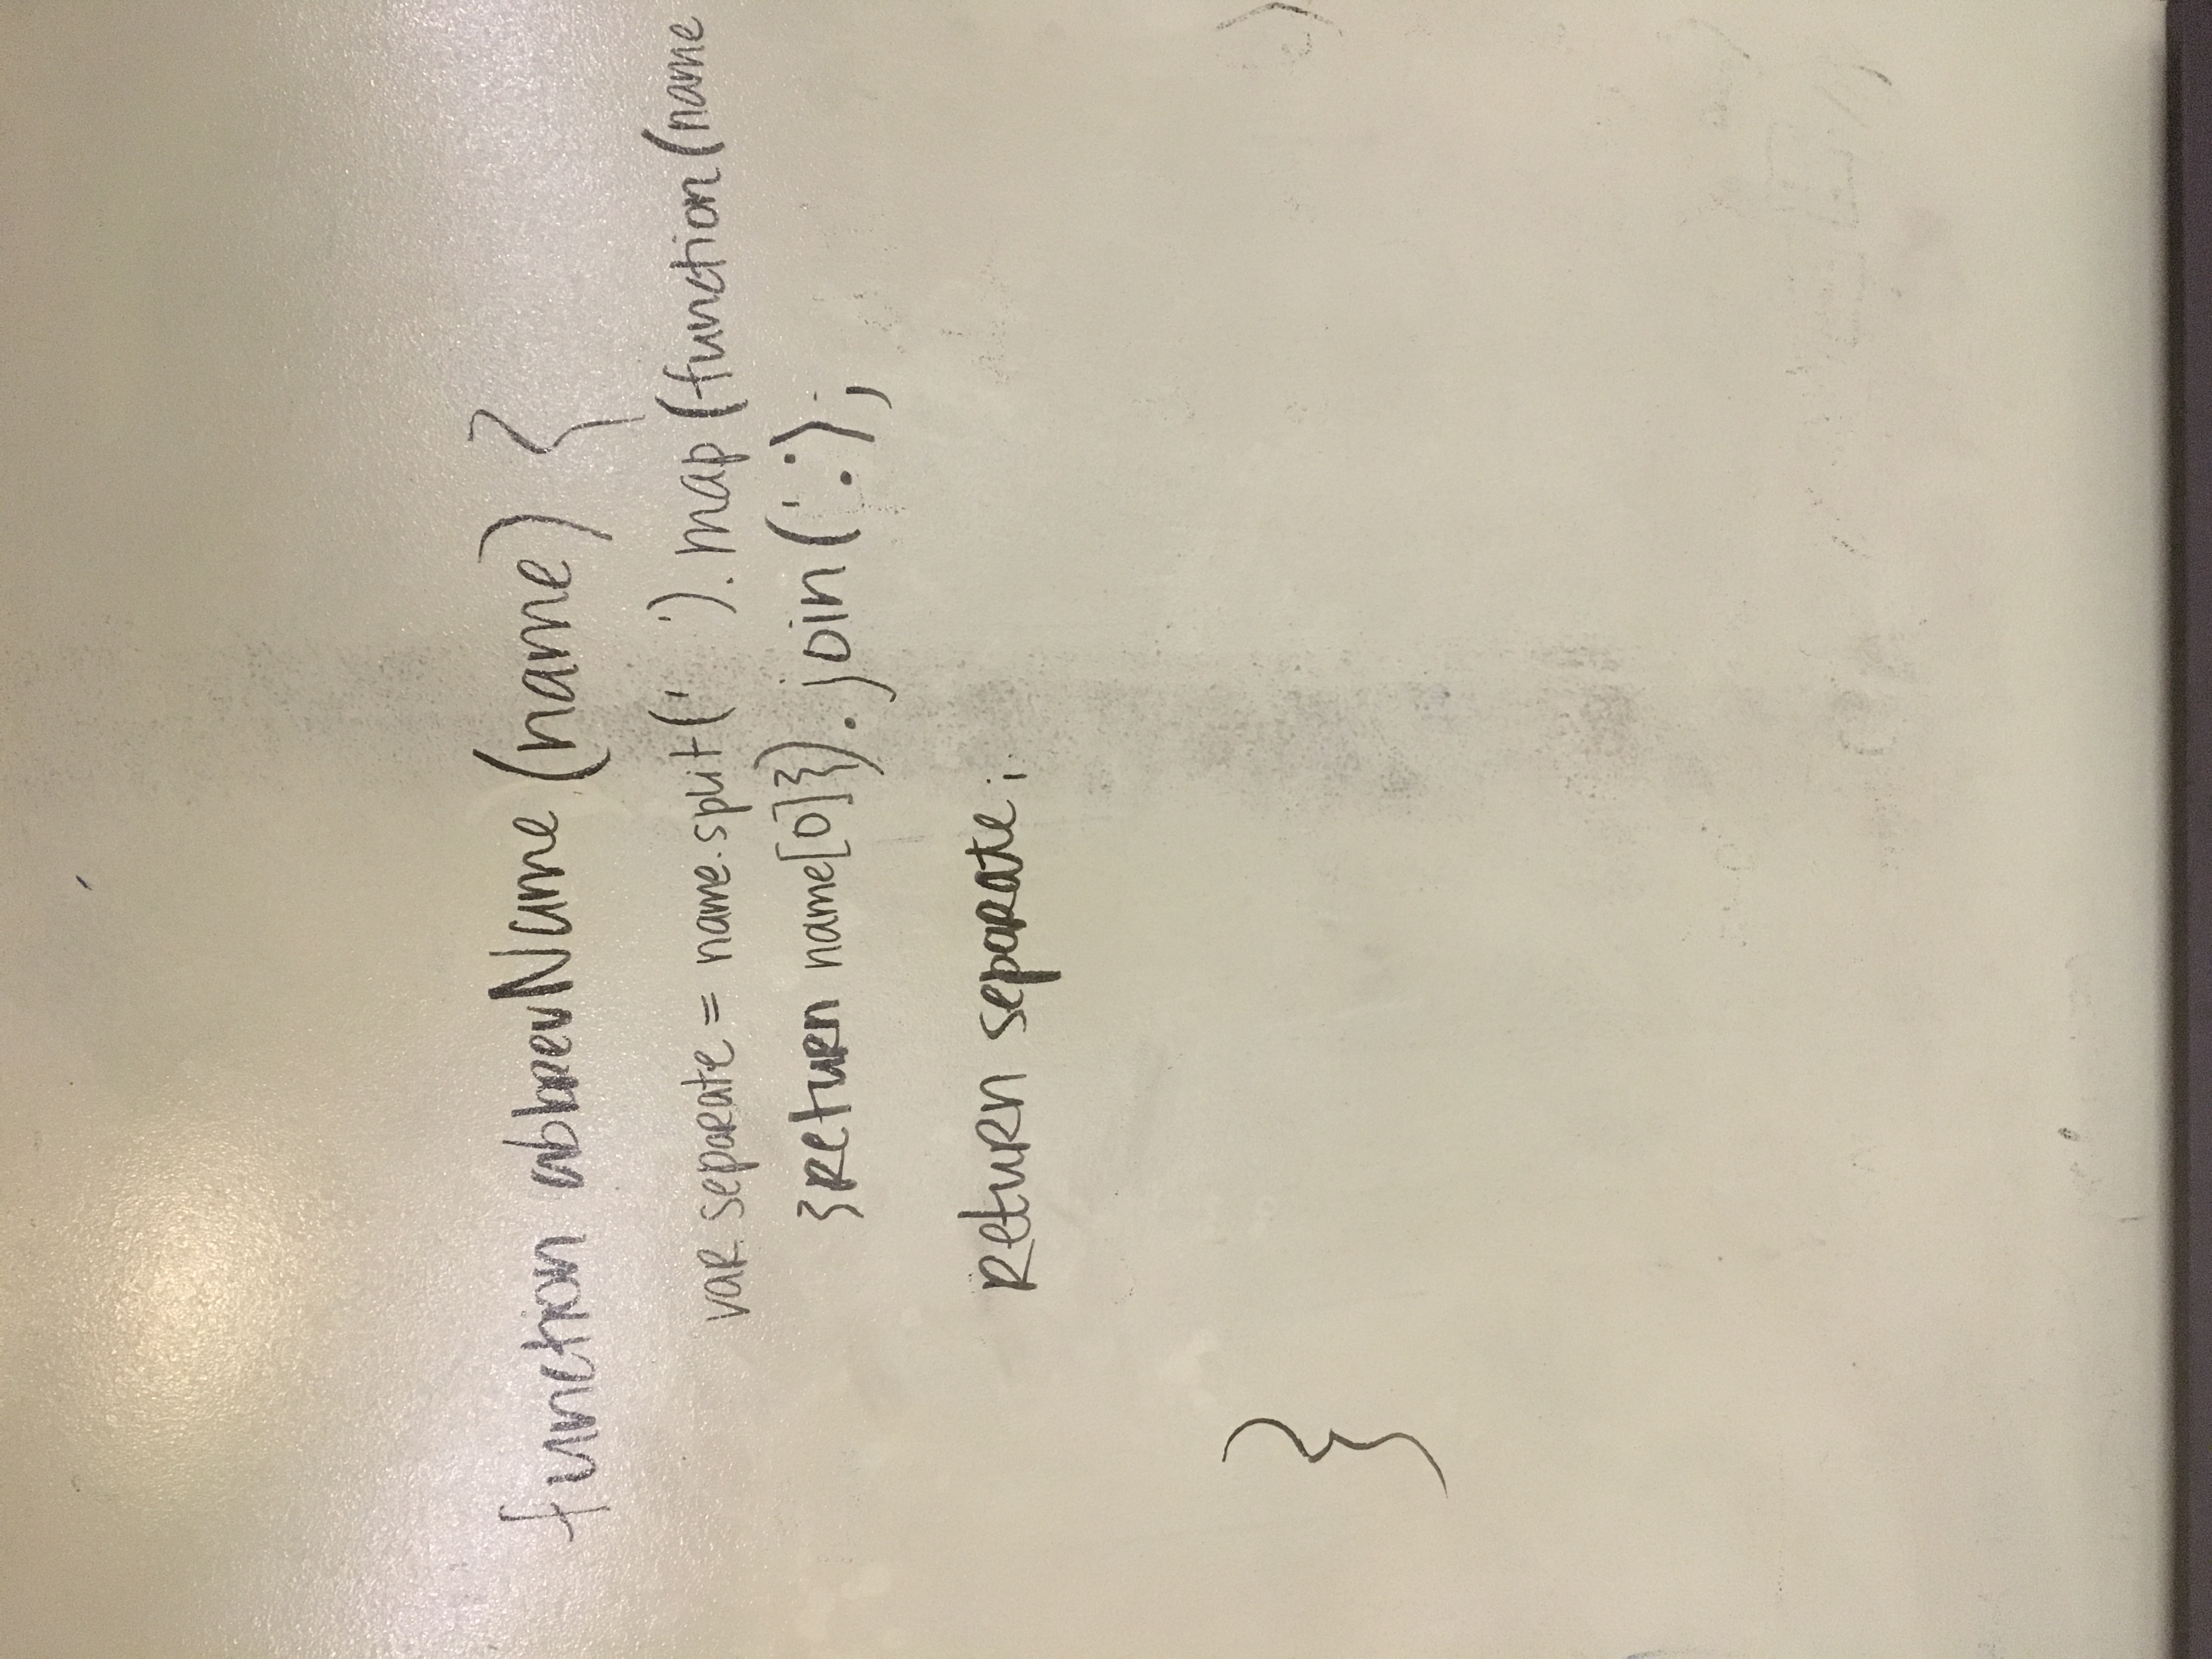 function abbrevName (name) {
var separate = name.split(' '). map (function (name
}return name[0]}).join('.');
return separate;
}